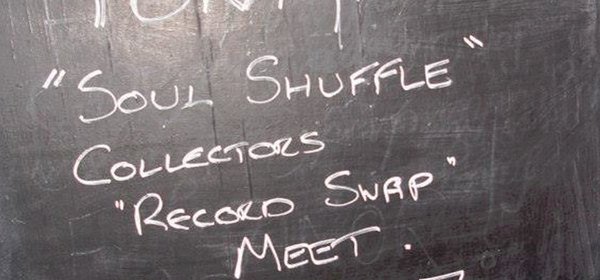 "SOUL SHUFFLE"
COLLECTORS
"RECORD SWAP"
MEET.